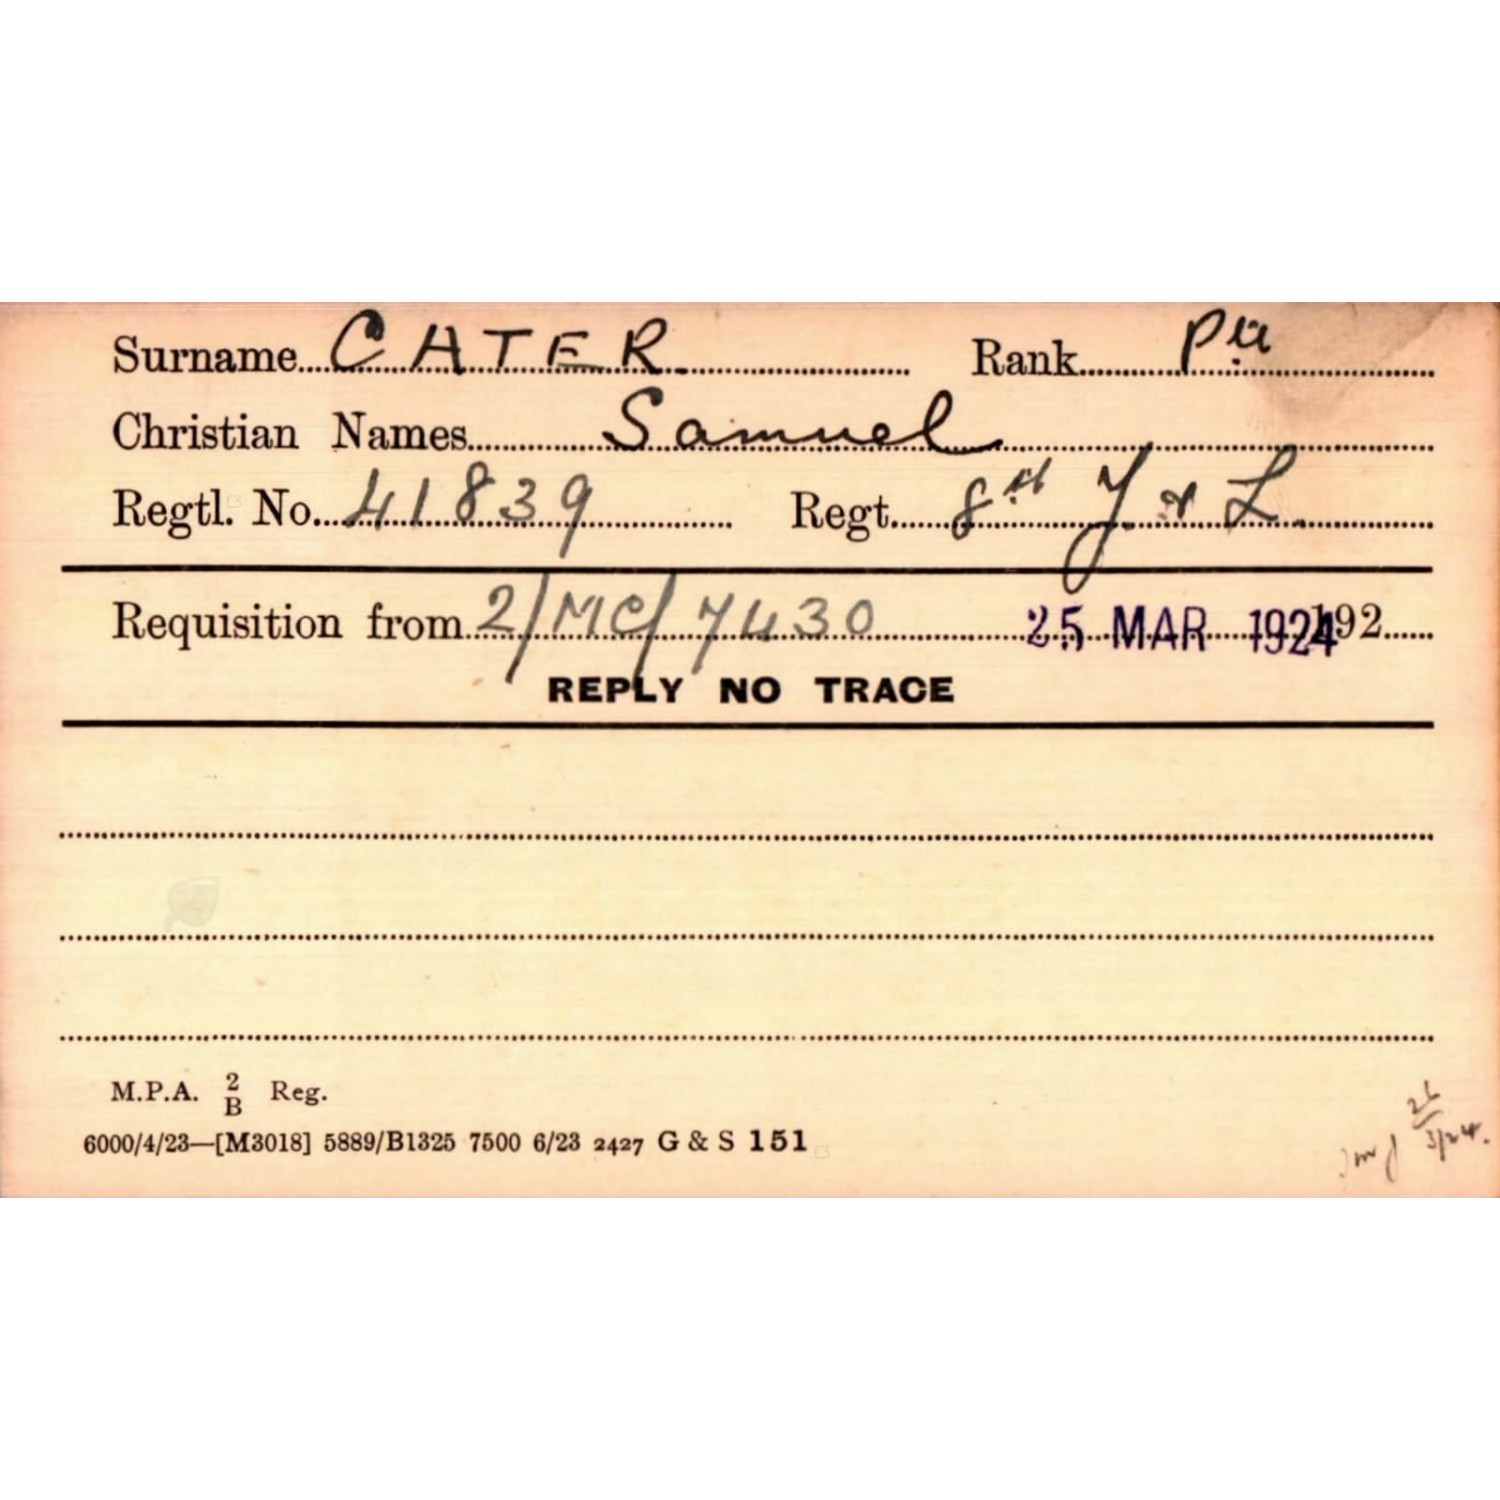 Surname CATER. Rank Pte
Christian Names Samuel
Regtl. No. 41839 Regt. 8th Y & L.
Requisition from 2/MC/7430 25 MAR 1924 192
REPLY NO TRACE
M.P.A. 2/B Reg.
6000/4/23—[M3018] 5889/B1325 7500 6/23 2427 G & S 151
26/3/24.